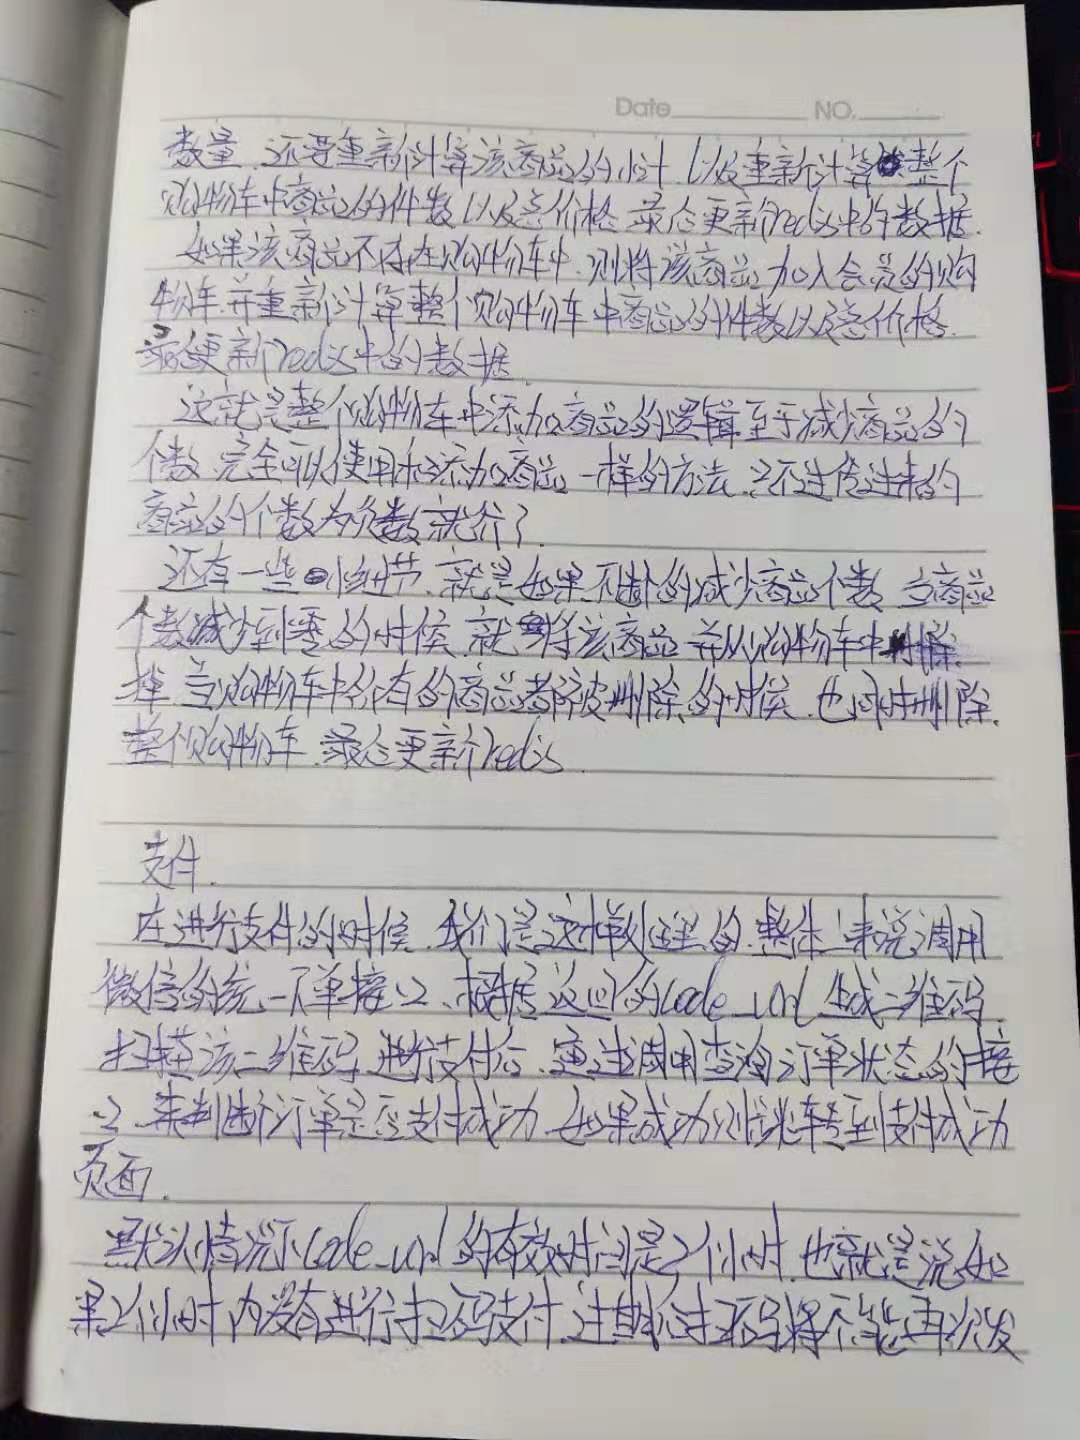 Date NO.
数量，还要重新计算该商品的小计，以及重新计算整个
购物车中商品的件数以及总价格，最后更新redis中的数据.
如果该商品不存在购物车中，则将该商品加入会员的购
物车，并重新计算整个购物车中商品的件数以及总价格.
最后更新redis中的数据.
这就是整个购物车中添加商品的逻辑至于减少商品的
个数，完全可以使用和添加商品一样的方法，只不过传进来的
商品的个数为负数就行了.
还有一些小细节，就是如果不断的减少商品个数，当商品
个数减少到零的时候，就将该商品并从购物车中删除
掉，当购物车中所有的商品都被删除的时候，也同时删除
整个购物车，最后更新redis.
支付.
在进行支付的时候，我们是这样处理的，整体上来说调用
微信的统一下单接口，根据返回的code_url生成二维码
扫描该二维码，进行支付后，通过调用查询订单状态的接
口，来判断订单是否支付成功，如果成功则跳转到支付成功
页面.
默认情况下code_url的有效时间是2个小时，也就是说如
果2个小时内没有进行扫码支付，过期后扫码将不能再次发